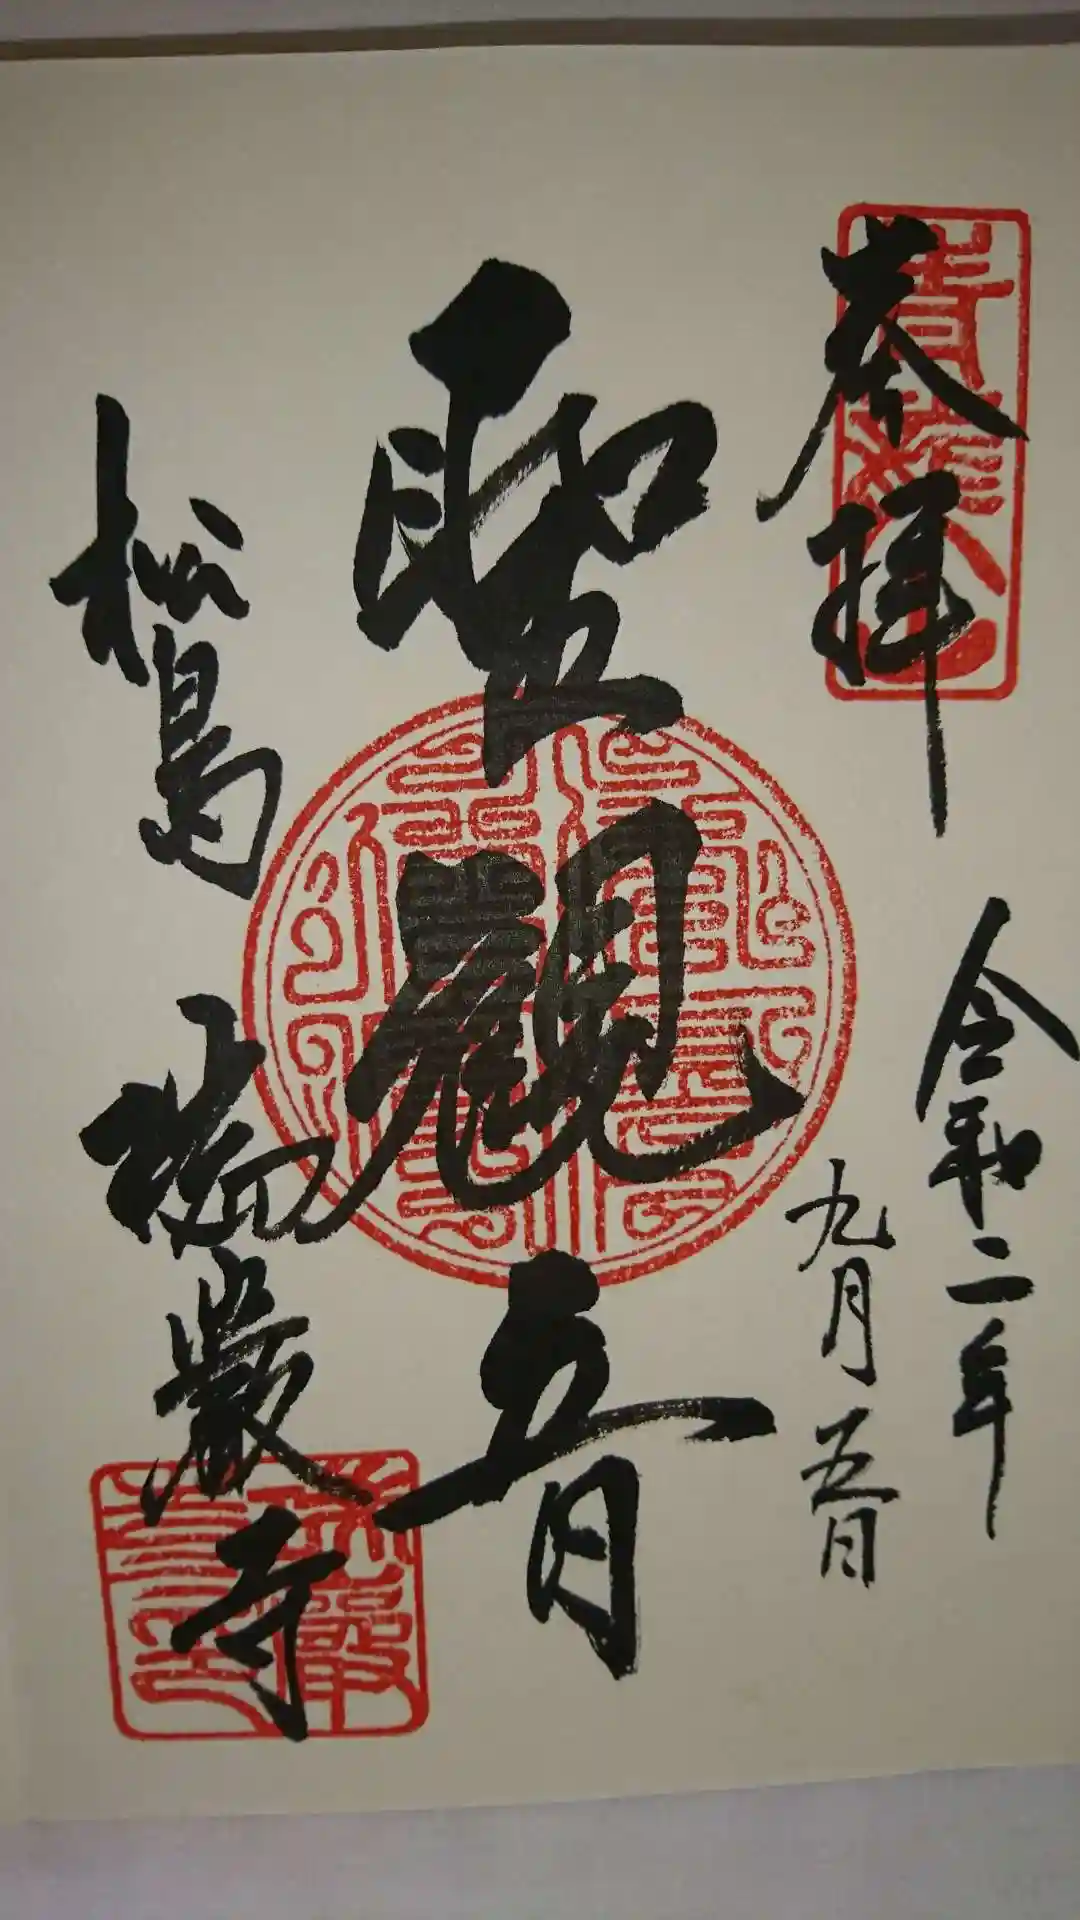 奉拝
令和二年
九月五日
聖觀音
松島
瑞巌寺